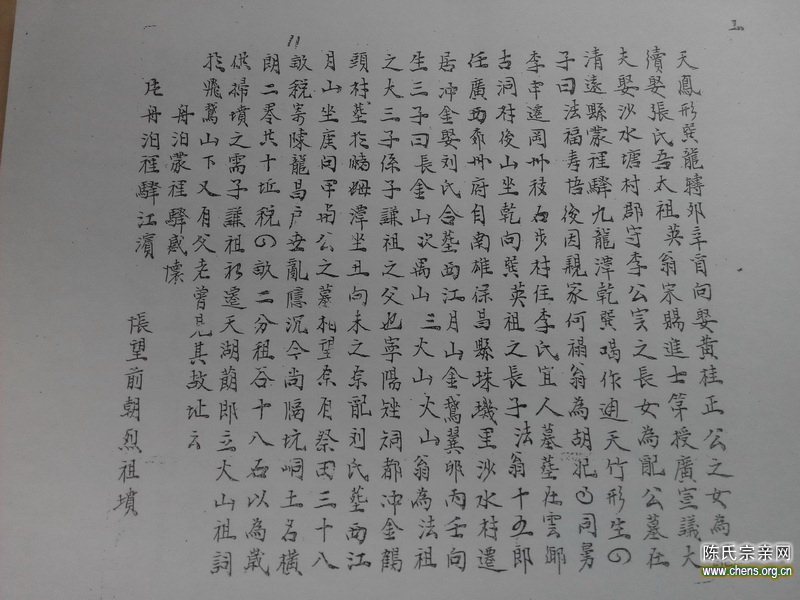 天鳳形巽龍轉卯辛酉向娶黃桂正公之女為
續娶張氏吾太祖英翁宋賜進士第授廣宣議大
夫娶沙水塘村郡守李公实之長女為配公墓在
清遠縣濛裡驛九龍潭乾巽喝作迎天竹形生の
子曰法福寿悟後因親家何福翁為胡犯已同舅
李申遷岡州移石步村住李氏宜人墓葬在雲鄉
古洞村後山坐乾向巽英祖之長子法翁十五郎
任廣西州府自南雄保昌縣珠璣里沙水村遷
居冲金娶刘氏合葬西江月山金鵝翼卯丙壬向
生三子曰長金山次禺山三火山火山翁為法祖
之大三子係子謙祖之父也寧陽矬祠都冲金鶴
頭村葬於潭坐丑向未之原配刘氏葬西江
月山坐庚向甲与公之墓相望原有祭田三十八
畝税寄陳龍昌户世亂隱沉今尚隔坑峒土名橫
朗二叁共十坵税の畝二分租谷十八石以為歲
供掃墳之需子謙祖初遷天湖蓢即立火山祖詞
於飛鵞山下又有父老曾見其故址云
舟泊濛裡驛感懷
舟泊裡驛江濱
悵望前朝烈祖墳
11
陈氏宗亲网
www.chens.org.cn